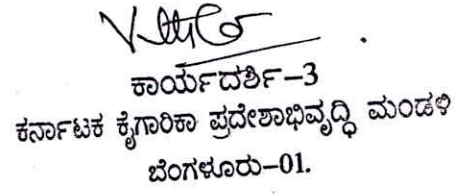 ಕಾರ್ಯದರ್ಶಿ–3
ಕರ್ನಾಟಕ ಕೈಗಾರಿಕಾ ಪ್ರದೇಶಾಭಿವೃದ್ಧಿ ಮಂಡಳಿ
ಬೆಂಗಳೂರು–01.